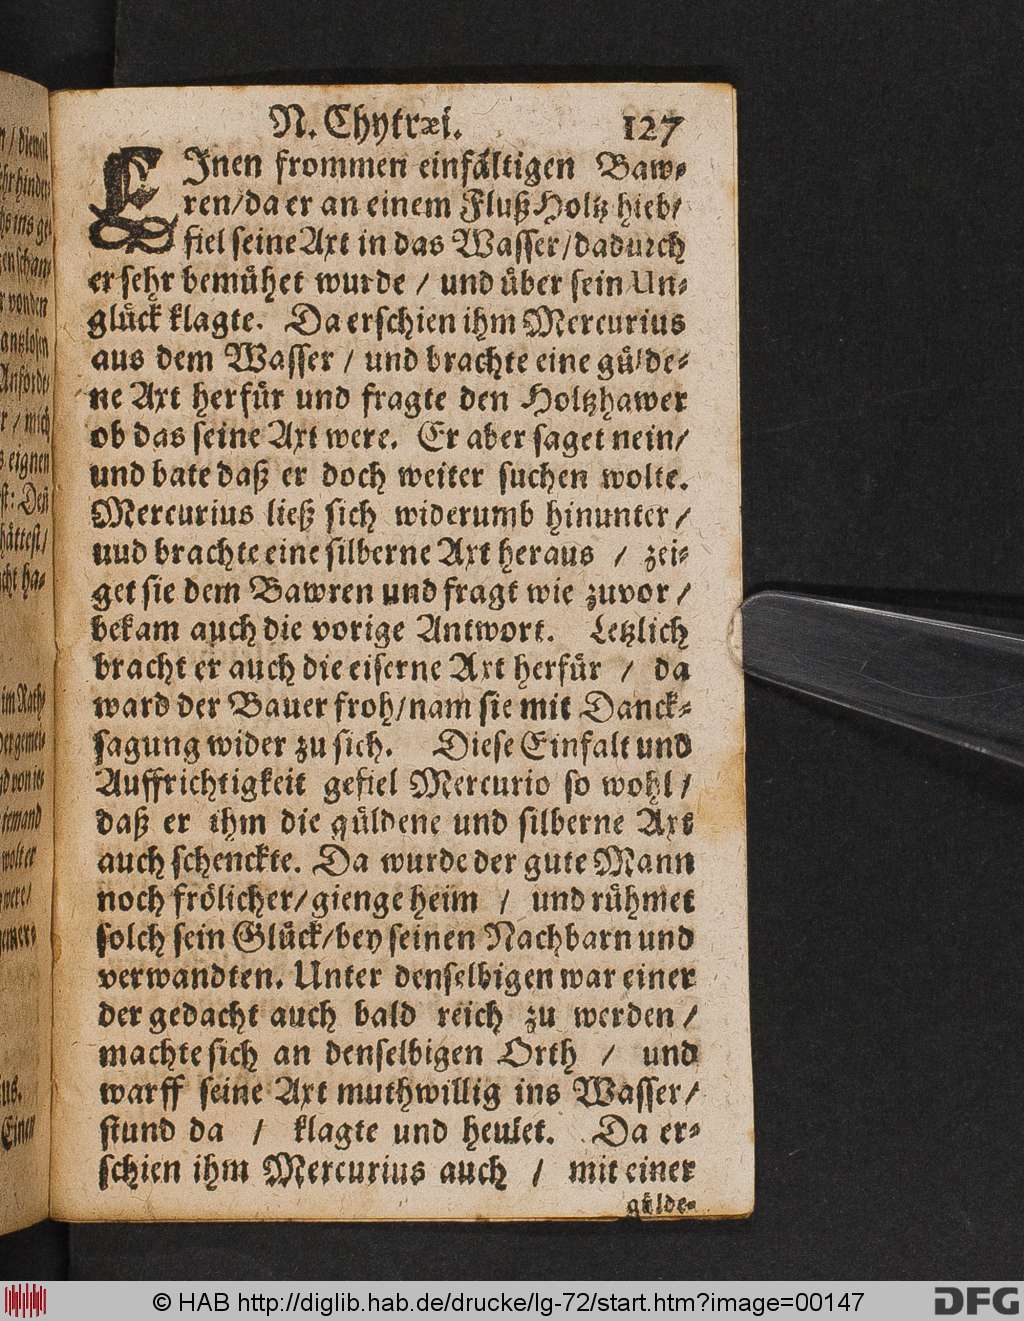 N. Chytræi. 127
EJnen frommen einfältigen Baw-
ren/da er an einem Fluß Holtz hieb/
fiel seine Axt in das Wasser/dadurch
er sehr bemühet wurde / und über sein Un-
glück klagte. Da erschien ihm Mercurius
aus dem Wasser / und brachte eine gülde-
ne Axt herfür und fragte den Holtzhawer
ob das seine Axt were. Er aber saget nein/
und bate daß er doch weiter suchen wolte.
Mercurius ließ sich widerumb hinunter /
uud brachte eine silberne Axt heraus / zei-
get sie dem Bawren und fragt wie zuvor /
bekam auch die vorige Antwort. Letzlich
bracht er auch die eiserne Axt herfür / da
ward der Bauer froh/nam sie mit Danck-
sagung wider zu sich. Diese Einfalt und
Auffrichtigkeit gefiel Mercurio so wohl /
daß er ihm die güldene und silberne Axt
auch schenckte. Da wurde der gute Mann
noch frölicher/gienge heim / und rühmet
solch sein Glück/bey seinen Nachbarn und
verwandten. Unter denselbigen war einer
der gedacht auch bald reich zu werden /
machte sich an denselbigen Orth / und
warff seine Axt muthwillig ins Wasser/
stund da / klagte und heulet. Da er-
schien ihm Mercurius auch / mit einer
gülde-
© HAB http://diglib.hab.de/drucke/lg-72/start.htm?image=00147
DFG